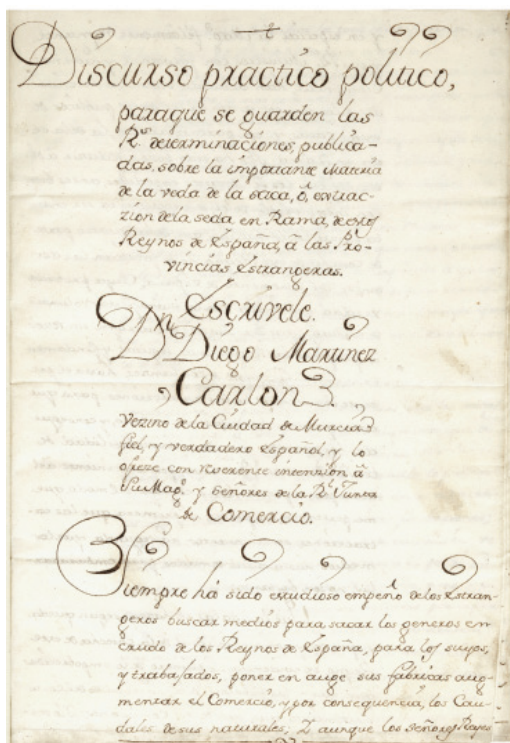 Discurso practico politico,
paraque se guarden las
Rs. determinaciones, publica-
das, sobre la importante Materia
de la veda de la saca, ó, extrac-
zion de la seda en Rama, de estos
Reynos de España, â las Pro-
vincias Estrangeras.
Escrívele.
Dn Diego Martinez
Carlon
Vezino de la Ciudad de Murcia
fiel, y verdadero Español, y lo
ofreze con reverente intenzion â
Su Magd. y Señores de la Rl. Junta
de Comercio.
Siempre há sido estudioso empeño de los Estran-
geros buscar medios para sacar los generos en
crudo de los Reynos de España, para los suyos,
y trabajados, poner en auge sus fabricas aug-
mentar el Comercio, y por consequencia, los Cau-
dales de sus naturales; Y aunque los señores Reyes